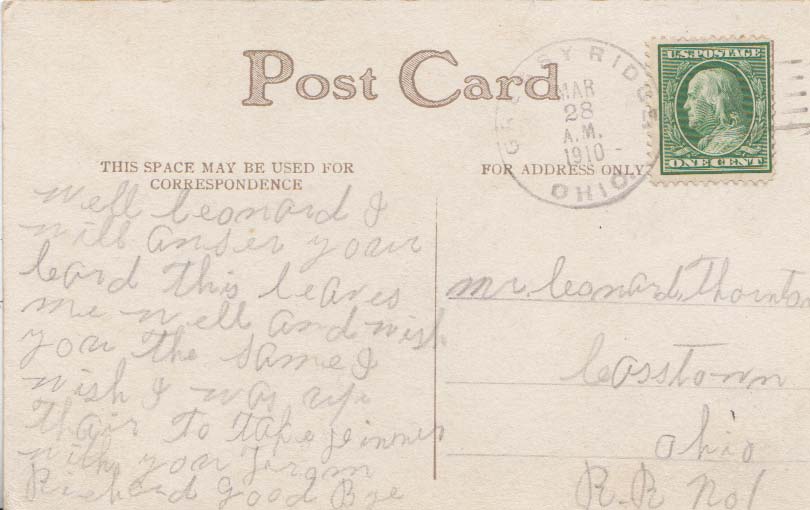 Post Card
GRASSY RIDGE
MAR
28
A.M.
1910
OHIO.
U.S. POSTAGE
ONE CENT
THIS SPACE MAY BE USED FOR
CORRESPONDENCE
FOR ADDRESS ONLY
well leonard I
will anser your
card this leaves
me well and wish
you the same I
wish I was up
thair to take dinner
with you from
Richard Good Bye
mr. leonard. Thornton
Casstown
ohio
R.R no1